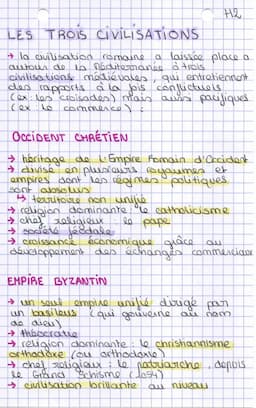 H2
LES TROIS CIVILISATIONS
→ la civilisation romaine a laissée place a
autour de la Méditerranée à trois
civilisations médiévales, qui entretiennent
des rapports à la fois conflictuels
(ex: les croisades) mais aussi pacifiques
(ex le commerce) :
OCCIDENT CHRÉTIEN
→ héritage de l'Empire Romain d'Occident
→ divisé en plusieurs royaumes et
empires dont les régimes politiques
sont absolus
↳ territoire non unifié
→ religion dominante: le catholicisme
→ chef religieux : le pape
→ société féodale
→ croissance économique grâce au
développement des échanges commerciaux
EMPIRE BYZANTIN
→ un seul empire unifié dirigé par
un basileus (qui gouverne au nom
de dieu)
→ théocratie
→ religion dominante : le christiannisme
orthodoxe (ou orthodoxie)
→ chef religieux : le patriarche, depuis
le Grand Schisme (1054)
→ civilisation brillante au niveau